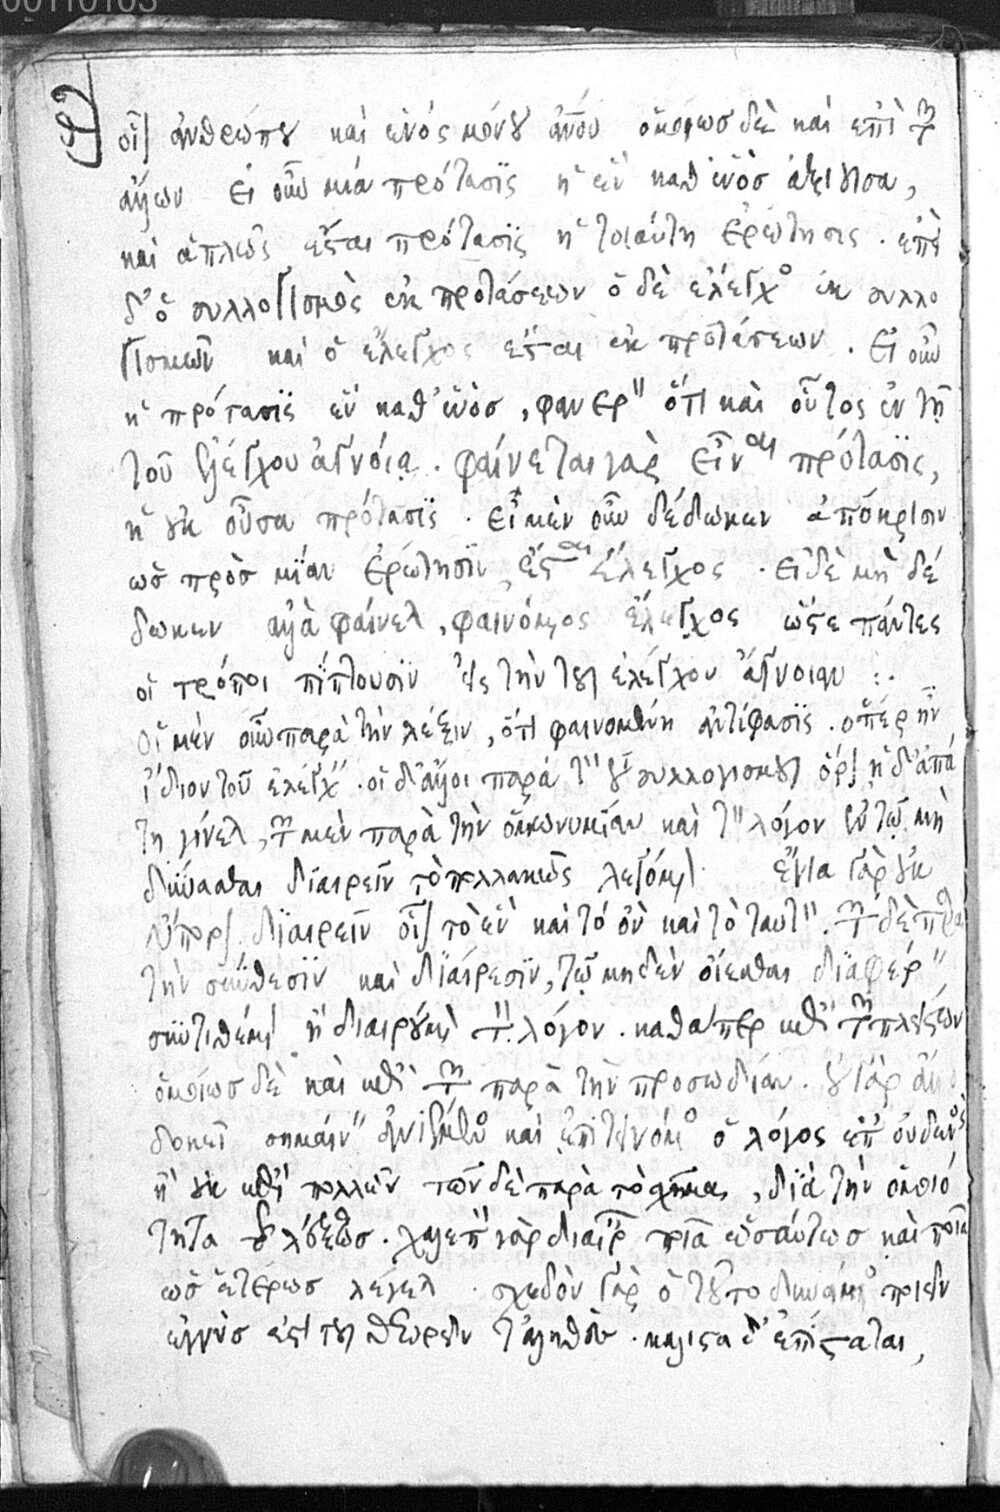 00110103
οἷον ἀνθρώπου καὶ ἑνὸς μόνου ἀνου ὁμοίως δὲ καὶ ἐπὶ τῶν
ἄλλων εἰ οὖν μία πρότασϊς ἡ ἓν καθ ἑνὸσ ἀξιοῦσα,
καὶ ἁπλῶς ἔσται πρότασϊς ἡ τοιαύτη ἐρώτησις. ἐπεὶ
δ' ὁ συλλογισμὸς ἐκ προτάσεων ὁ δὲ ἔλεγχος ἐκ συλλο
γισμῶν καὶ ὁ ἔλεγχος ἔσται ἐκ προτάσεων. Εἰ οὖν
ἡ πρότασϊς ἓν καθ' ἑνὸσ, φανερὸν ὅτι καὶ οὗτος ἐν τῇ
τοῦ ἐλέγχου ἀγνοίᾳ. φαίνεται γὰρ εἶναι πρότασϊς,
ἡ οὐκ οὖσα πρότασϊς. εἰ μὲν οὖν δέδωκεν ἀπόκρισιν
ὡσ πρὸσ μίαν ἐρώτησϊν, ἔσται ἔλεγχος. Ει δὲ μὴ δέ
δωκεν ἀλλὰ φαίνεται, φαινόμενος ἔλεγχος ὥστε πάντες
οἱ τρόποι πίπτουσϊν εἰς τὴν τοῦ ἐλέγχου ἄγνοιαν :.
Οἱ μὲν οὖν παρὰ τὴν λέξιν, ὅτι φαινομένη ἀντίφασϊς. ὅπερ ἦν
ἴδιον τοῦ ἐλέγχου. οἱ δ' ἄλλοι παρὰ τὸν τοῦ συλλογισμοῦ ὅρον ἡ δ' ἀπά
τη γίνεται, τῶν μὲν παρὰ τὴν ὁμωνυμίαν καὶ τὸν λόγον ἐν τῷ μὴ
δύνασθαι διαιρεῖν τὸ πολλαχῶς λεγόμενον. ἔνια γὰρ οὐκ
εὔπορον διαιρεῖν οἷον τὸ ἓν καὶ τὸ ὂν καὶ τὸ ταυτὸν. τῶν δὲ παρὰ
τὴν σύνθεσϊν καὶ διαίρεσϊν, τῷ μηδὲν οἴεσθαι διαφέρειν
συντιθέμενον ἢ διαιρούμενον τὸν λόγον. καθάπερ ἐπὶ τῶν πλείστων
ὁμοίωσ δὲ καὶ ἐπὶ τῶν παρὰ τὴν προσωδιαν. οὐ γὰρ ἄλλο
δοκεῖ σημαίνειν ἀνιέμενος καὶ ἐπιτεινόμενος ὁ λόγος ἐπ' οὐδενὸς
ἢ οὐκ ἐπὶ πολλῶν τῶν δὲ παρὰ τὸ σχῆμα, διὰ τὴν ὁμοιό
τητα τῆς λέξεως. χαλεπὸν γὰρ διαιρεῖν ποῖα ὡσαύτως καὶ ποῖα
ὡσ ἑτέρωσ λέγεται. σχεδὸν γὰρ ὁ τοῦτο δυνάμενος ποιεῖν
ἐγγὺσ ἐστὶ τοῦ θεωρεῖν τἀληθές. μάλιστα δ' ἐπίσταται,